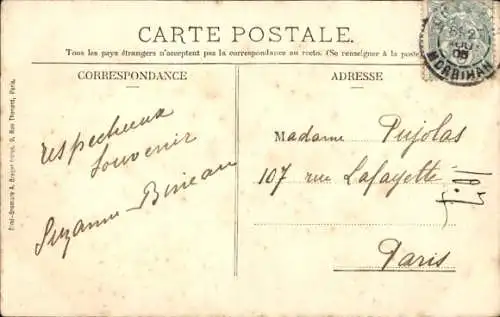 CARTE POSTALE.
Tous les pays étrangers n'acceptent pas la correspondance au recto. (Se renseigner à la poste
CORRESPONDANCE
ADRESSE
respectueux
souvenir
Suzanne Bineau
Madame Pujolas
107 rue Lafayette
Paris
MORBIHAN